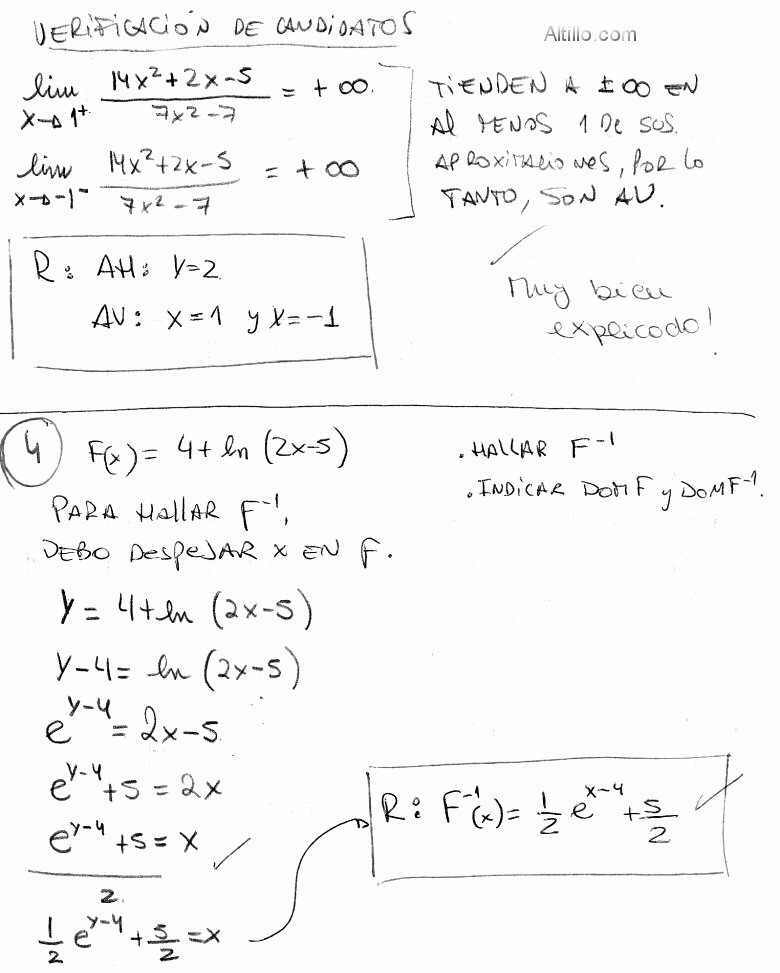 VERIFICACIÓN DE CANDIDATOS
Altillo.com
lim x→1⁺ (14x²+2x-5)/(7x²-7) = +∞.
lim x→-1⁻ (14x²+2x-5)/(7x²-7) = +∞
TIENDEN A ±∞ EN
Al MENOS 1 DE SUS
APROXIMACIONES, POR lo
TANTO, SON AV.
R: AH: Y=2
AV: X=1 y X=-1
Muy bien
explicado!
4 F(x) = 4+ln (2x-5)
. HALLAR F⁻¹
. INDICAR DOM F y DOM F⁻¹.
PARA HALLAR F⁻¹,
DEBO DESPEJAR X EN F.
Y = 4+ln (2x-5)
Y-4 = ln (2x-5)
e^(y-4) = 2x-5
e^(y-4) + 5 = 2x
(e^(y-4) + 5)/2 = x
1/2 e^(y-4) + 5/2 = x
R: F⁻¹(x) = 1/2 e^(x-4) + 5/2